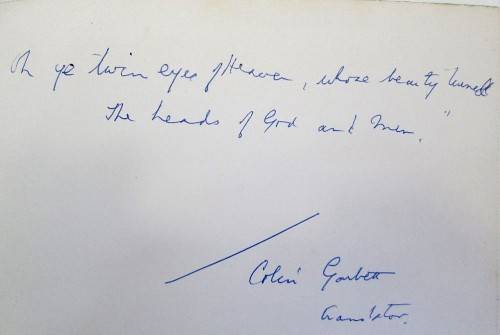 Oh ye twin eyes of Heaven, whose beauty turneth
The heads of God and Men."
Colin Garbett
translator.